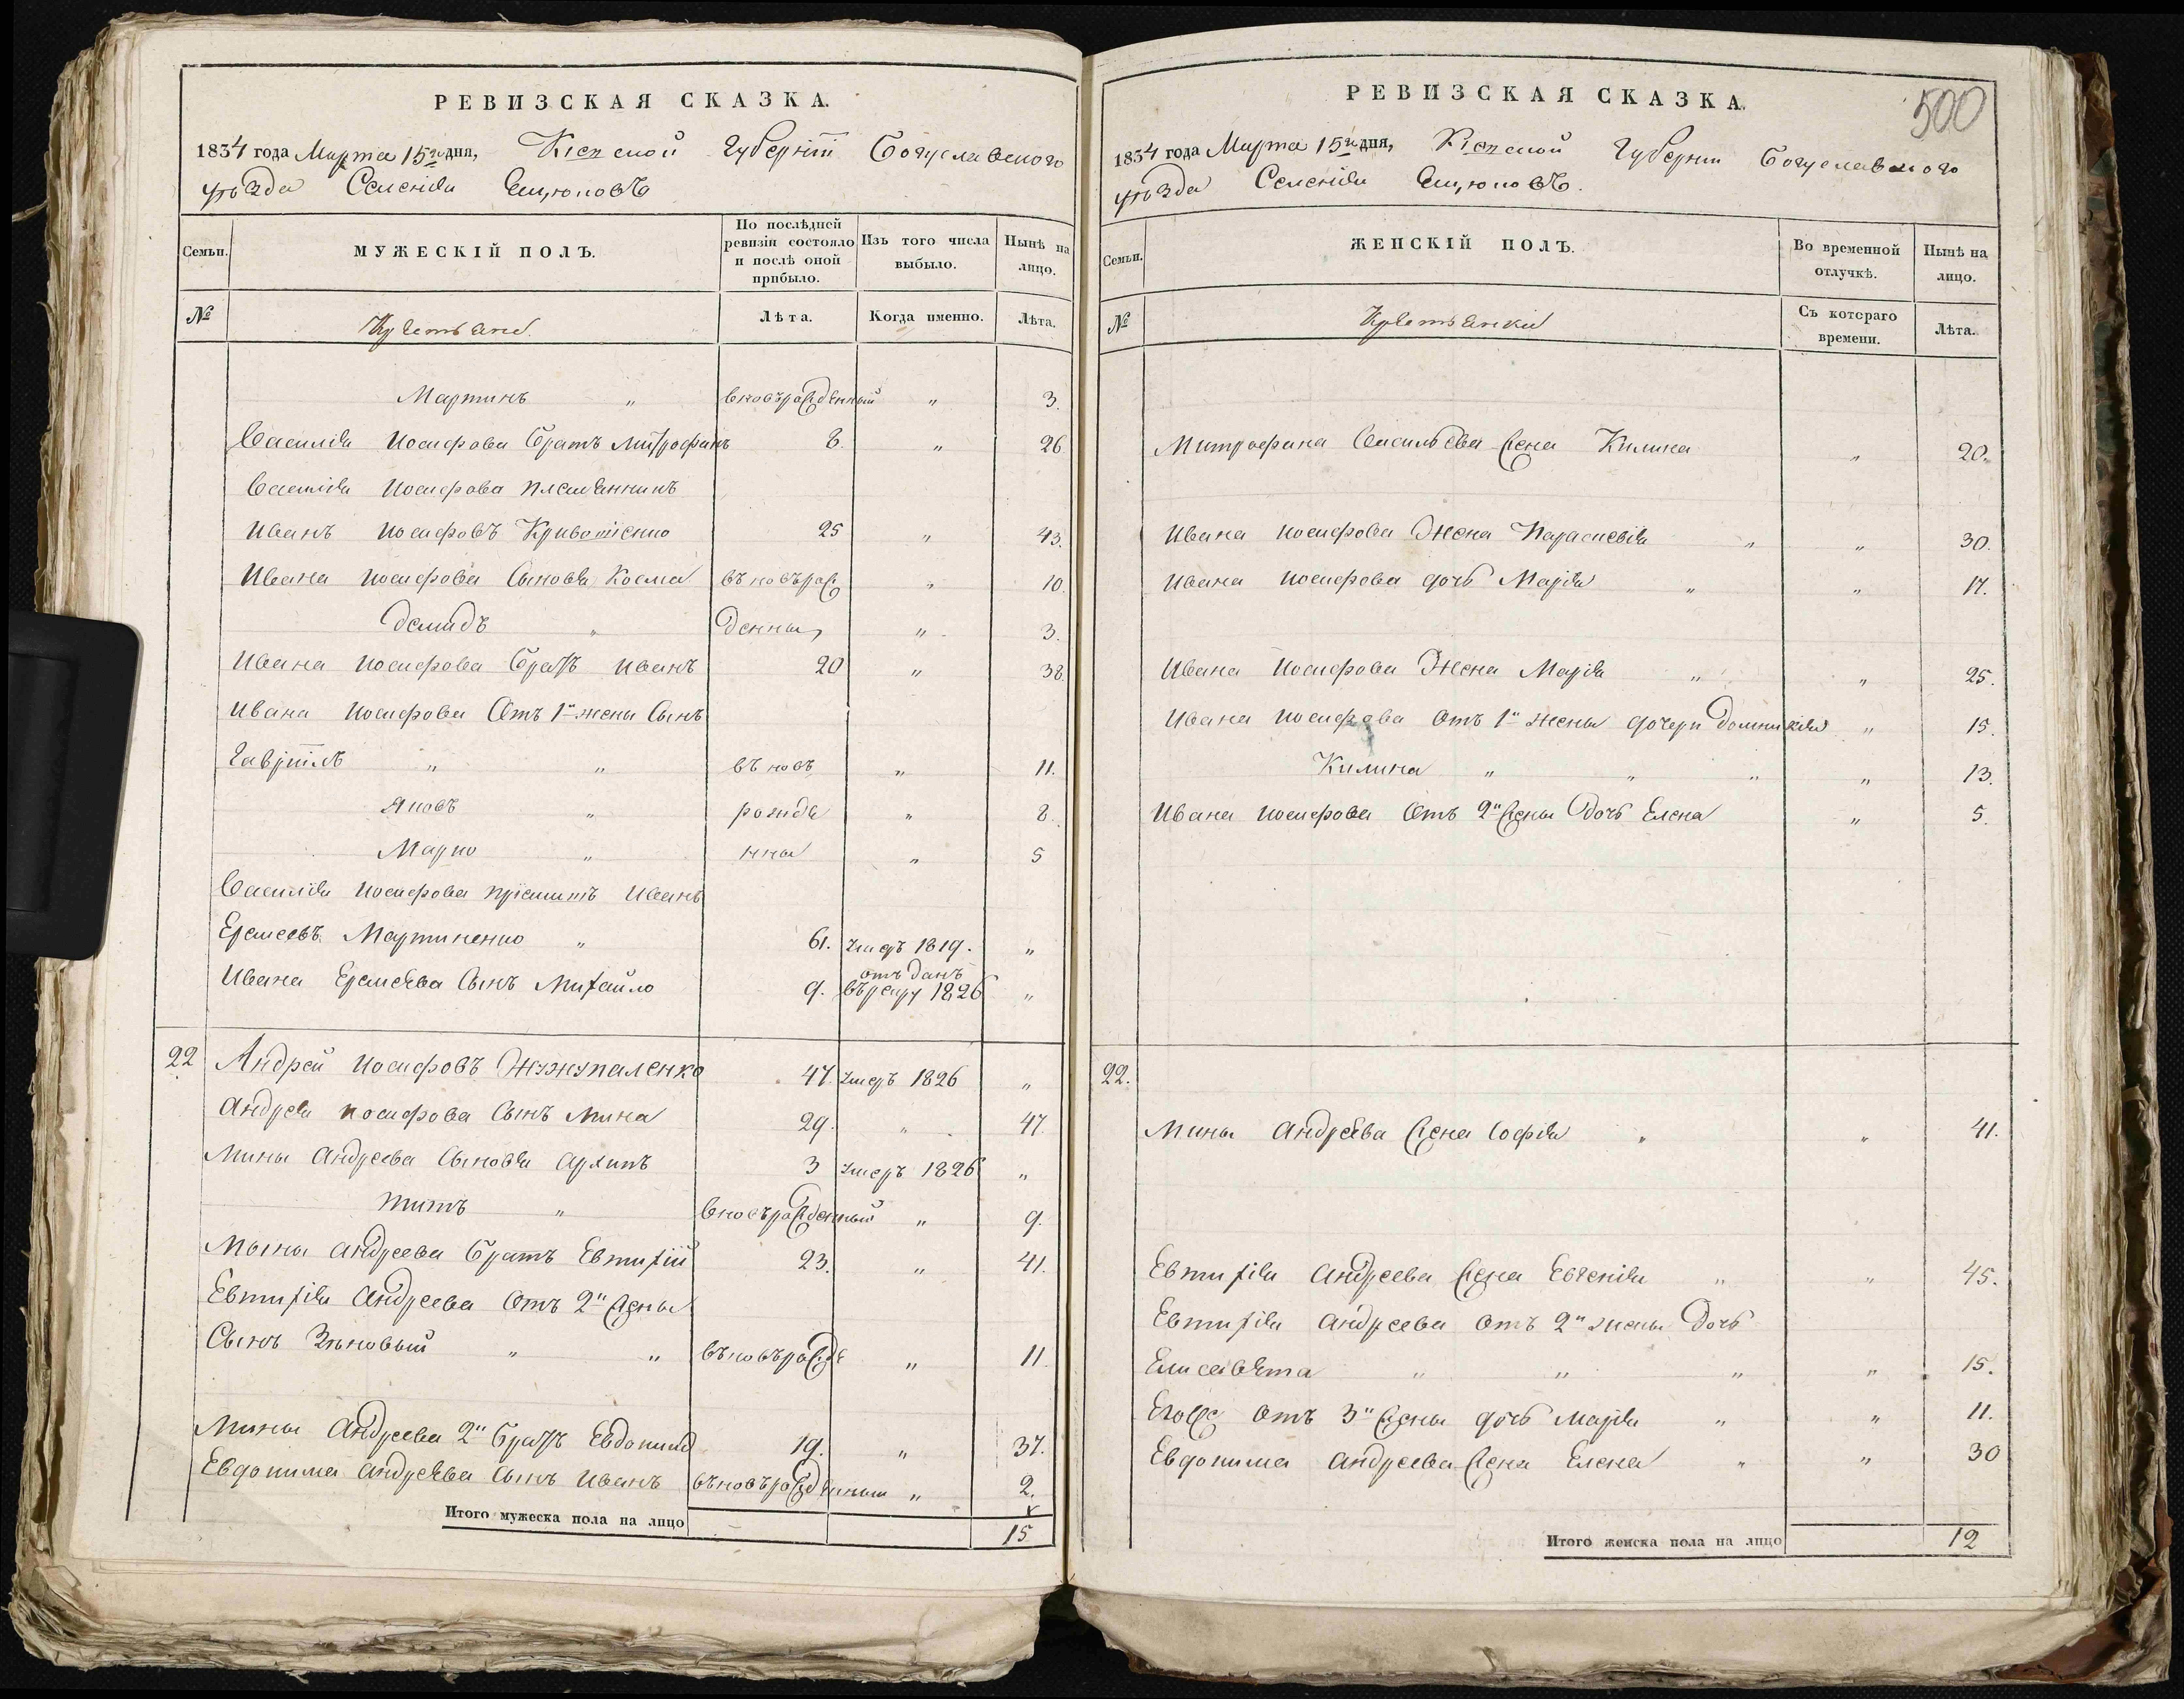 РЕВИЗСКАЯ СКАЗКА.
1834 года Марта 15го дня, Кіевской Губерніи Богуславского
уѣзда Селенія
Семьи.
МУЖЕСКІЙ ПОЛЪ.
По послѣдней ревизіи состояло и послѣ оной прибыло.
Изъ того числа выбыло.
Нынѣ на лицо.
№
Крестьяне.
Лѣта.
Когда именно.
Лѣта.
Мартинъ " вновърожденный " 3.
Василія Иосифова Братъ Митрофанъ 8. " 26
Василія Иосифова племянникъ
Иванъ Иосифовъ 25 " 43.
Ивана Иосифова Сыновя Косма въновърож " 10.
Демидъ " денны " 3.
Ивана Иосифова Братъ Иванъ 20 " 38.
Ивана Иосифова Отъ 1й жены Сынъ
Гавріилъ " " въновъ " 11.
Яковъ " рожде " 8.
Марко " нны " 5
Василія Иосифова пріимитъ Иванъ
Еремеевъ Мартиненко " 61. умеръ 1819. "
Ивана Еремѣева Сынъ Михайло 9. отъданъ въ рекру 1826 "
22 Андрей Иосифовъ Жужупаленко 47. умеръ 1826 "
Андрея Иосифова Сынъ Мина 29. " 47.
Мины Андреева Сыновя Архипъ 3 умеръ 1826 "
Титъ " вновърожденный " 9.
Мины Андреева Братъ Евтихій 23. " 41.
Евтихія Андреева Отъ 2й жены
Сынъ Зѣновый " " въновърожде " 11.
Мины Андреева 2й Братъ Евдокимъ 19. " 37.
Евдокима Андреѣва Сынъ Иванъ въновърожденный " 2.
Итого мужеска пола на лицо 15
500
РЕВИЗСКАЯ СКАЗКА.
1834 года Марта 15го дня, Кіевской Губерніи Богуславского
уѣзда Селенія
Семьи.
ЖЕНСКІЙ ПОЛЪ.
Во временной отлучкѣ.
Нынѣ на лицо.
№
Крестьянки
Съ котораго времени.
Лѣта.
Митрофана Васильева жена Килина " 20.
Ивана Иосифова Жена Параскевія " " 30.
Ивана Иосифова дочь Марія " " 17.
Ивана Иосифова Жена Марія " " 25.
Ивана Иосифова Отъ 1й жены дочери Домникія " 15.
Килина " " " " 13.
Ивана Иосифова Отъ 2й жены дочь Елена " 5.
22.
Мины Андреѣва жена Софія " " 41.
Евтихія Андреева жена Евгенія " " 45.
Евтихія Андреева Отъ 2й жены Дочь
Елисавѣта " " " " 15.
Егоже Отъ 3й жены дочь Марія " " 11.
Евдокима Андреева жена Елена " " 30
Итого женска пола на лицо 12